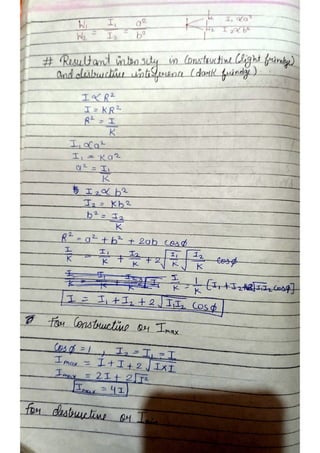 W₁ = I₁ = a² I₁ ∝ a²
W₂ I₂ b² I₂ ∝ b²
# Resultant intensity in constructive (light fringe)
and destructive interference (dark fringe)
I ∝ R²
I = KR²
R² = I/K
I₁ ∝ a²
I₁ = Ka²
a² = I₁/K
I₂ ∝ b²
I₂ = Kb²
b² = I₂/K
R² = a² + b² + 2ab cosø
I/K = I₁/K + I₂/K + 2√I₁/K √I₂/K cosø
I/K = 1/K [I₁ + I₂ + 2√I₁I₂ cosø]
I = I₁ + I₂ + 2√I₁I₂ cosø
For Constructive or Imax
cosø = 1, I₂ = I₁ = I
Imax = I + I + 2√I×I
Imax = 2I + 2√I²
Imax = 4I
For destructive or